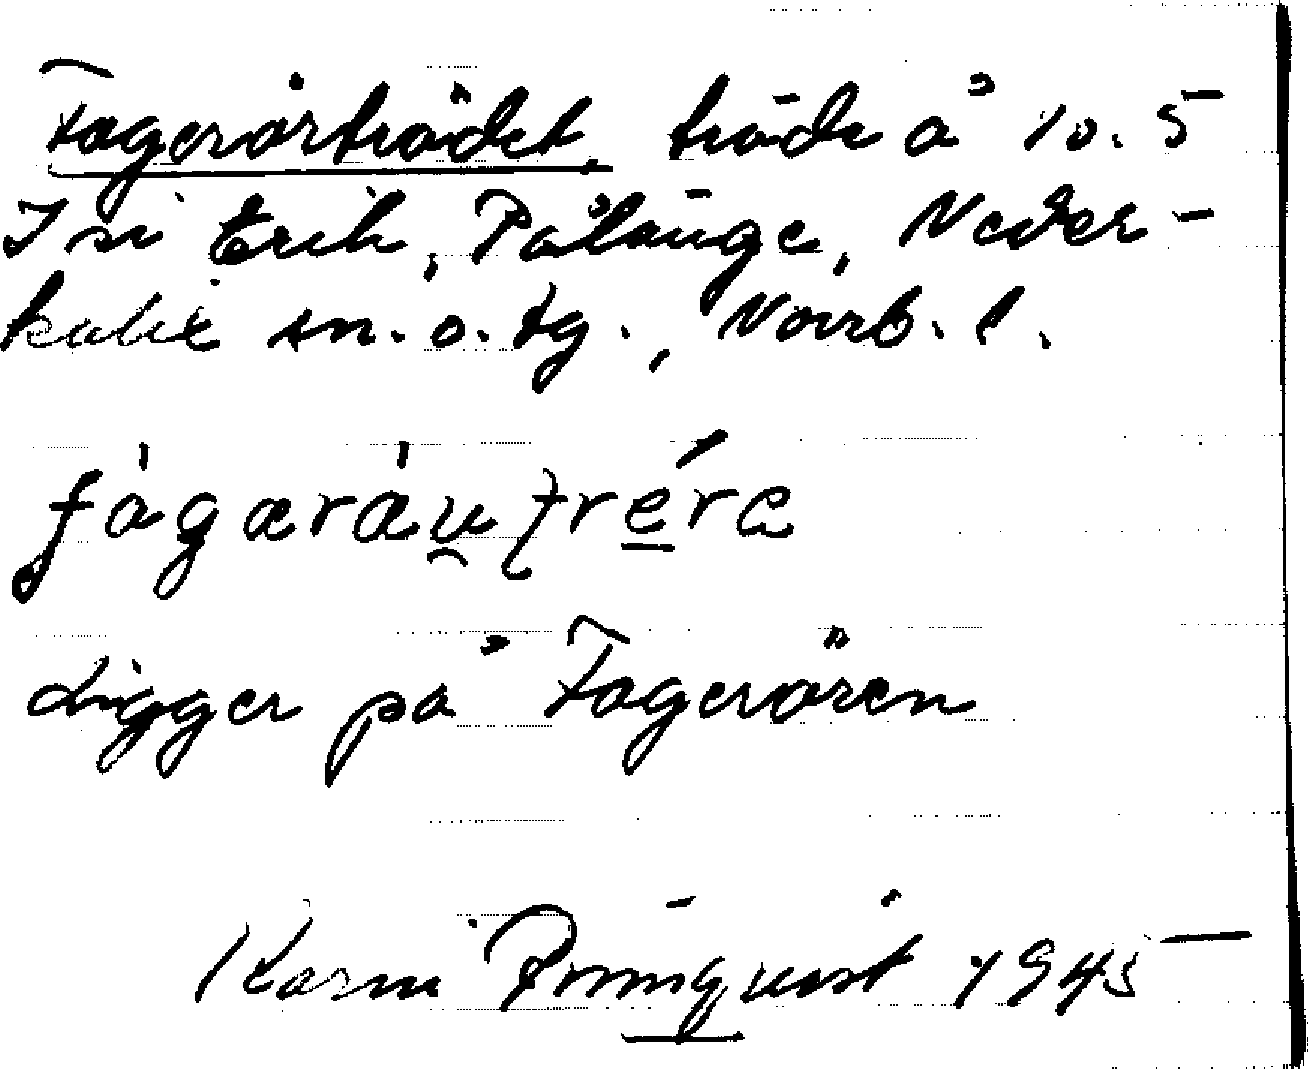 Fagerörträdet, träda å 10.5
I si Erik, Pålänge, Neder-
kalix sn. o. tg., Norrb. l.
fàgæràu̯tré̱ra
Ligger på Fagerören
Karin Rönnqvist 1945